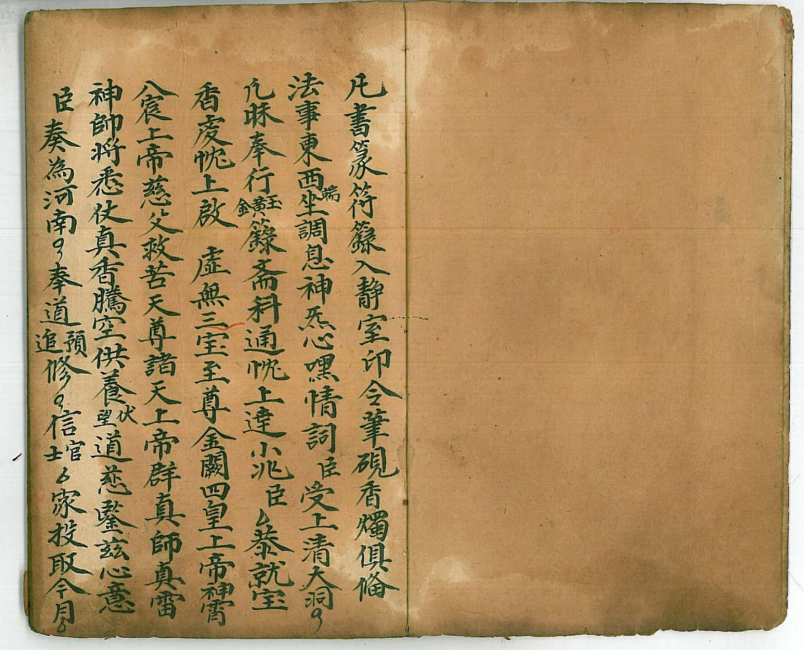 凡書篆符籙入靜室印令筆硯香燭俱俻
法事東西端坐調息神炁心嘿情詞臣受上清大洞
凡昧奉行玉黃金籙斋科通悃上達小兆臣厶恭就宝
香處悃上啟 虛無三宝至尊金闕四皇上帝神霄
八宸上帝慈父救苦天尊諸天上帝群真師真雷
神師将悉仗真香騰空供養伏望道慈鑒兹心意
臣奏為河南奉道預追修信官士厶家投取今月